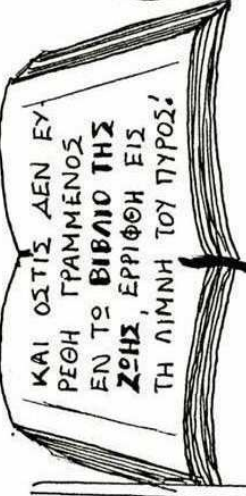 ΚΑΙ ΟΣΤΙΣ ΔΕΝ ΕΥ-
ΡΕΘΗ ΓΡΑΜΜΕΝΟΣ
ΕΝ ΤΩ ΒΙΒΛΙΟ ΤΗΣ
ΖΩΗΣ, ΕΡΡΙΦΘΗ ΕΙΣ
ΤΗ ΛΙΜΝΗ ΤΟΥ ΠΥΡΟΣ!